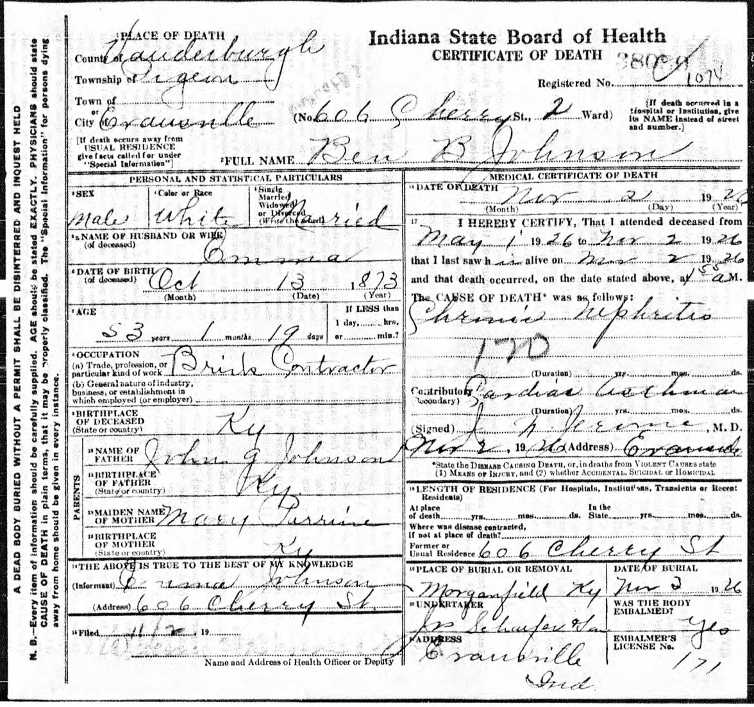 A DEAD BODY BURIED WITHOUT A PERMIT SHALL BE DISINTERRED AND INQUEST HELD
N. B.—Every item of information should be carefully supplied. AGE should be stated EXACTLY. PHYSICIANS should state
CAUSE OF DEATH in plain terms, that it may be properly classified. The "Special Information" for persons dying
away from home should be given in every instance.
PLACE OF DEATH
County of Vanderburgh
Township of Pigeon
Town of
or
City of Evansville
[If death occurs away from
USUAL RESIDENCE
give facts called for under
"Special Information"]
Indiana State Board of Health
CERTIFICATE OF DEATH
Registered No. 1074
(No. 606 Cherry St., 2 Ward)
[If death occurred in a
Hospital or Institution, give
its NAME instead of street
and number.]
FULL NAME Ben B Johnson
PERSONAL AND STATISTICAL PARTICULARS
SEX Male
Color or Race White
Single
Married
Widowed
or Divorced
(Write the word)
Married
NAME OF HUSBAND OR WIFE
(of deceased)
Emma
DATE OF BIRTH
(of deceased)
Oct 13 1873
(Month) (Date) (Year)
AGE
53 years 1 months 19 days
If LESS than
1 day, hrs.
or min.?
OCCUPATION
(a) Trade, profession, or
particular kind of work Brick Contractor
(b) General nature of industry,
business, or establishment in
which employed (or employer)
BIRTHPLACE
OF DECEASED
(State or country)
Ky
PARENTS
NAME OF
FATHER
John G Johnson
BIRTHPLACE
OF FATHER
(State or country)
Ky
MAIDEN NAME
OF MOTHER
Mary Perrine
BIRTHPLACE
OF MOTHER
(State or country)
Ky
THE ABOVE IS TRUE TO THE BEST OF MY KNOWLEDGE
(Informant) Emma Johnson
(Address) 606 Cherry St
Filed 11/2 19
Name and Address of Health Officer or Deputy
MEDICAL CERTIFICATE OF DEATH
DATE OF DEATH
Nov 2 1926
(Month) (Day) (Year)
I HEREBY CERTIFY, That I attended deceased from
May 1 1926 to Nov 2 1926
that I last saw h is alive on Nov 2 1926
and that death occurred, on the date stated above, at 1 55 a M.
The CAUSE OF DEATH* was as follows:
Chronic Nephritis
(Duration) yrs. mos. ds.
Contributory
(Secondary)
Cardiac Asthma
(Duration) yrs. mos. ds.
(Signed) J N Jerome, M. D.
Nov 2, 1926 (Address) Evansville
*State the DISEASE CAUSING DEATH, or, in deaths from VIOLENT CAUSES state
(1) MEANS OF INJURY, and (2) whether ACCIDENTAL, SUICIDAL or HOMICIDAL
LENGTH OF RESIDENCE (For Hospitals, Institutions, Transients or Recent
Residents)
At place
of death yrs. mos. ds.
In the
State yrs. mos. ds.
Where was disease contracted,
if not at place of death?
Former or
Usual Residence 606 Cherry St
PLACE OF BURIAL OR REMOVAL
Morganfield Ky
DATE OF BURIAL
Nov 3 1926
UNDERTAKER
WAS THE BODY
EMBALMED?
Yes
ADDRESS
Evansville
Ind
EMBALMER'S
LICENSE No.
171